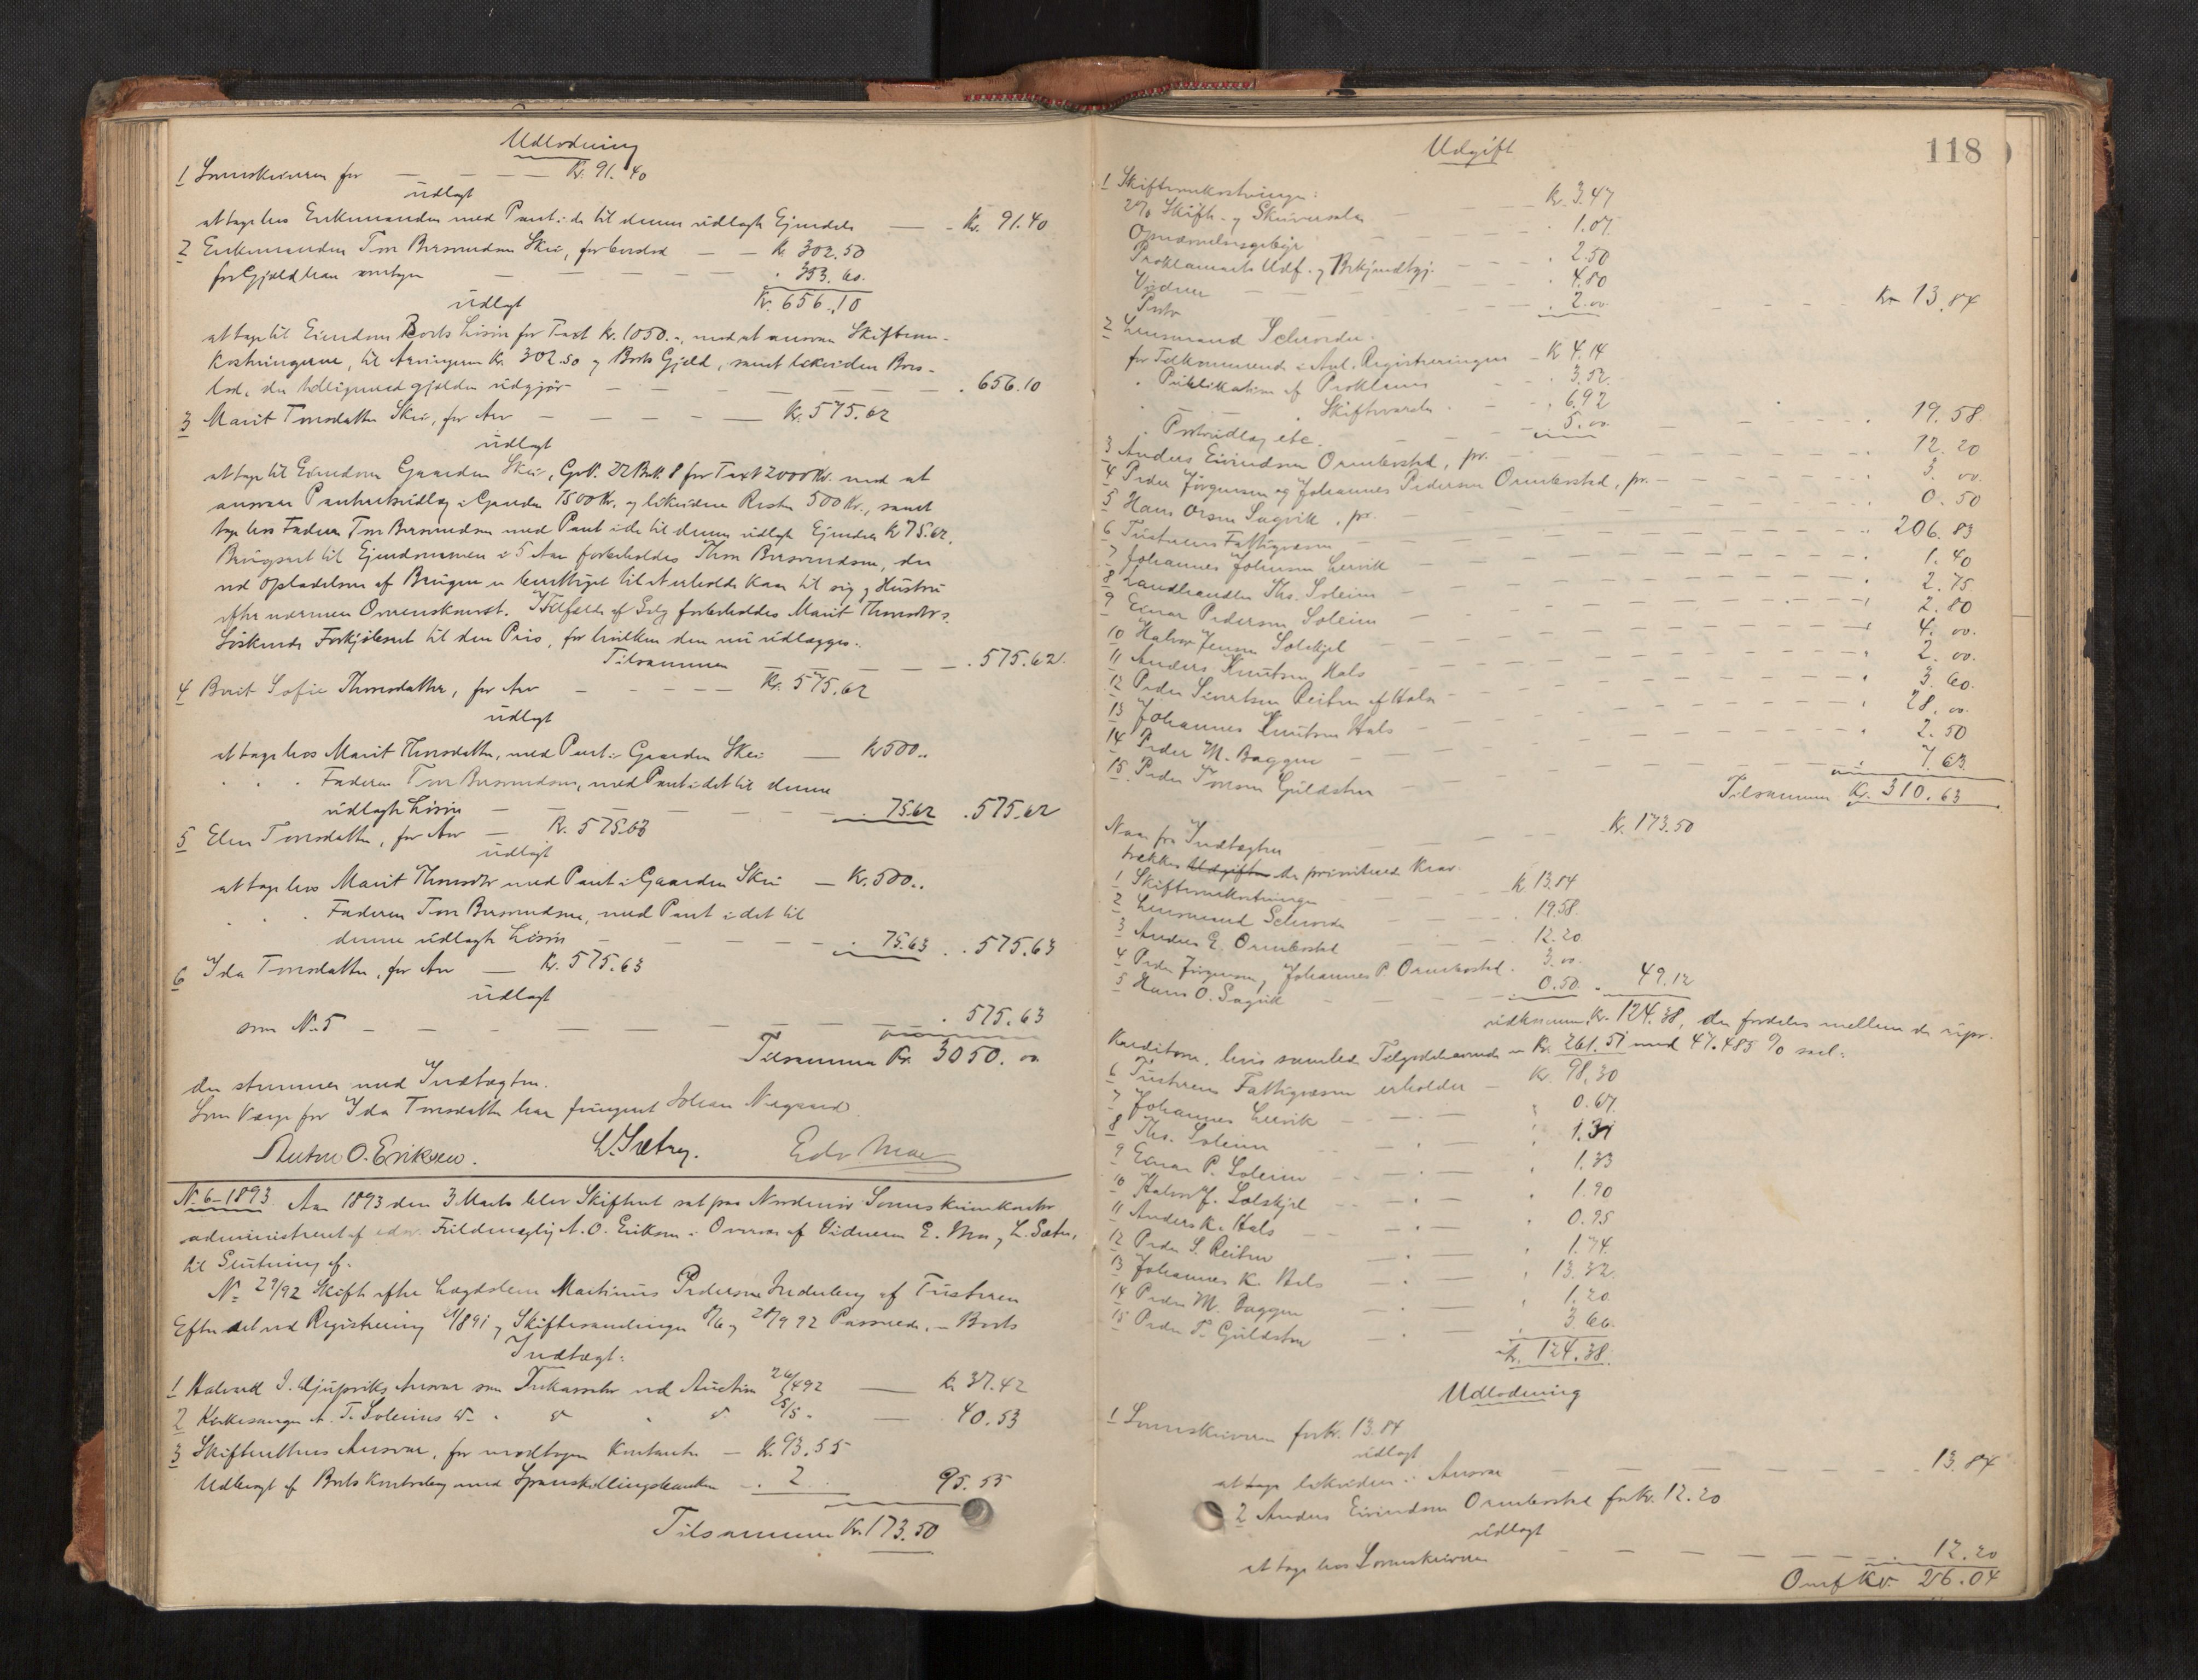 Udlodning
1 Sorenskriveren for — — — Kr. 91.40
udlagt
at tage hos Enkemanden med Pant i de til denne udlagte Ejendele — - Kr. 91.40
2 Enkemanden Tore Bersvendsen Skei, for boslod — — Kr 302.50
for Gjæld han overtager — — — — . 353.60
udlagt Kr. 656.10
at tage til Eiendom Boets Løsøre for Taxt kr. 1050.-, mod at ansvare Skifteom-
kostningerne, til Arvingerne Kr. 302.50 og Boets Gjæld, samt likvidere Bos-
lod, der tilligemed gjælden udgjør — — — — . 656.10
3 Marit Toresdatter Skei, for Arv — — — — Kr. 575.62
udlagt
at tage til Eiendom Gaarden Skei, GrN. 22 BrN. 8 for Taxt 2000 Kr. med at
ansvare Panthæftelse i Gaarden 1500 Kr. og likvidere Resten 500 Kr., samt
tage hos Faderen Tore Bersvendsen med Pant i de til denne udlagte Ejendele Kr 75.62.
Brugsret til Ejendommen i 5 Aar forbeholdes Thore Bersvendsen, der
ved Opladelsen af Brugen er berettiget til at erholde Kaar til sig og Hustru
efter nærmere Overenskomst. I Tilfælde af Salg forbeholdes Marit Thoresdtrs
Søskende Forkjøbsret til den Pris, for hvilken den nu udlægges.
Tilsammen — — — — . 575.62.
4 Berit Sofie Thoresdatter, for Arv — — — Kr. 575.62
udlagt
at tage hos Marit Thoresdatter, med Pant i Gaarden Skei — Kr 500..
. . . Faderen Tore Bersvendsen, med Pant i det til denne
udlagte Løsøre — — — — — . 75.62 . 575.62
5 Elen Toresdatter, for Arv — Kr. 575.63
udlagt
at tage hos Marit Thoresdtr med Pant i Gaarden Skei — Kr. 500..
. . . Faderen Tore Bersvendsen, med Pant i det til
denne udlagte Løsøre — — — — . 75.63 . . 575.63
6 Ida Toresdatter, for Arv — Kr. 575.63
udlagt
som N. 5 — — — — — — — — . 575.63
Tilsammen Kr. 3050. 00
der stemmer med Indtægten.
Som Værge for Ida Toresdatter har fungeret Johan Nægaard.
Anton O. Eriksen. L. Sætrey. Edv Moe
N. 6-1893. Aar 1893 den 3 Marts blev Skifteret sat paa Nordmør Sorenskriverkontor
administreret af edsv. Fuldmægtig A. O. Eriksen i Overvær af Vidnerne E. Moe og L. Sætrey,
til Slutning af.
N. 29/92 Skifte efter Lægdslem Martinus Pedersen Inderberg af Tustern
Efter det ved Registrering 8/91 og Skiftesamlinger 8/6 og 28/9 92 Passerede. — Boets
Indtægt:
1 Halvard I. Djupviks Ansvar som Inkassator ved Auktion 26/4 92 — Kr 37.42
2 Kirkesanger A. T. Soleims do. . do . do. 25/5 . — 40.53
3 Skifterettens Ansvar, for modtagen Kontanter — Kr. 93.55
Udbragt af Boets Kontrabog med Spareskillingsbanken — . 2 . . 95.55
Tilsammen Kr. 173.50
118
Udgift
1 Skifteomkostninger:
2% Skifte- og Skriversalær — — — Kr. 3.47
Opnævnelsesgebyr — — — — . 1.07.
Proklamaets Udf. og Bekjendtgj. — — — . 2.50
Vidner — — — — . 4.80
Porto — — — — . 2.00. — — — — Kr 13.84
2 Lensmand Schrøder:
for Tilkommende i Anl. Registreringen — Kr 4.14
. Publikation af Proklama — — . 3.52.
. . Skiftevarsler. — — . 6.92
. Portoudlæg etc. — — — . 5.00. — — — — . 19.58.
3 Anders Eivindsen Ormbostad, pr. — — — — . 12.20
4 Peder Jørgensen og Johannes Pedersen Ormbostad, pr. — — — . 3.00.
5 Hans Olsen Sagvik, pr. — — — — . 0.50
6 Tusterens Fattigvæsen — — — — . 206.83
7 Johannes Johnsen Leervik — — — — . 1.40
8 Landhandler Ths. Soleim — — — — . 2.75.
9 Einar Pedersen Soleim — — — — . 2.80
10 Halvor Jensen Solskjel — — — — . 4.00.
11 Anders Knutsen Hals — — — — . 2.00.
12 Peder Sivertsen Reiten af Hals — — — — . 3.60.
13 Johannes Knutsen Hals — — — — . 28.00.
14 Peder M. Baggen — — — — . 2.50
15 Peder Toresen Guldsten — — — — . 7.63.
Tilsammen Kr. 310.63
Naar fra Indtægten — — — — Kr. 173.50
trækkes Udgiften de prioriterede Krav.
1 Skifteomkostninger — — — Kr 13.84
2 Lensmand Schrøder — — — . 19.58.
3 Anders E. Ormbostad — — . 12.20
4 Peder Jørgensen og Johannes P. Ormbostad. . 3.00.
5 Hans O. Sagvik — — . 0.50. . 49.12
udkommer Kr. 124.38, der fordeles mellem de upr.
Kreditorer, hvis samlede Tilgodehavende er Kr. 261.51 med 47.485 % saal:
6 Tusteren Fattigvæsen erholder — Kr. 98.30
7 Johannes Leervik — . — . 0.67.
8 Ths. Soleim — . — . 1.31
9 Einar P. Soleim — . — . 1.33
10 Halvor J. Solskjel — . — . 1.90
11 Anders K. Hals — . — . 0.95
12 Peder S. Reiten — . — . 1.74.
13 Johannes K. Hals — . — . 13.32.
14 Peder M. Baggen — . — . 1.20
15 Peder T. Guldsten — . — . 3.66.
Kr. 124.38.
Udlodning
1 Sorenskriveren for Kr. 13.84
udlagt
at tage likviden i Ansvar — — — — . 13.84
2 Anders Eivindsen Ormbostad for Kr. 12.20
udlagt
at tage hos Sorenskriveren — — — — . 12.20
Omf Kr. 26.04